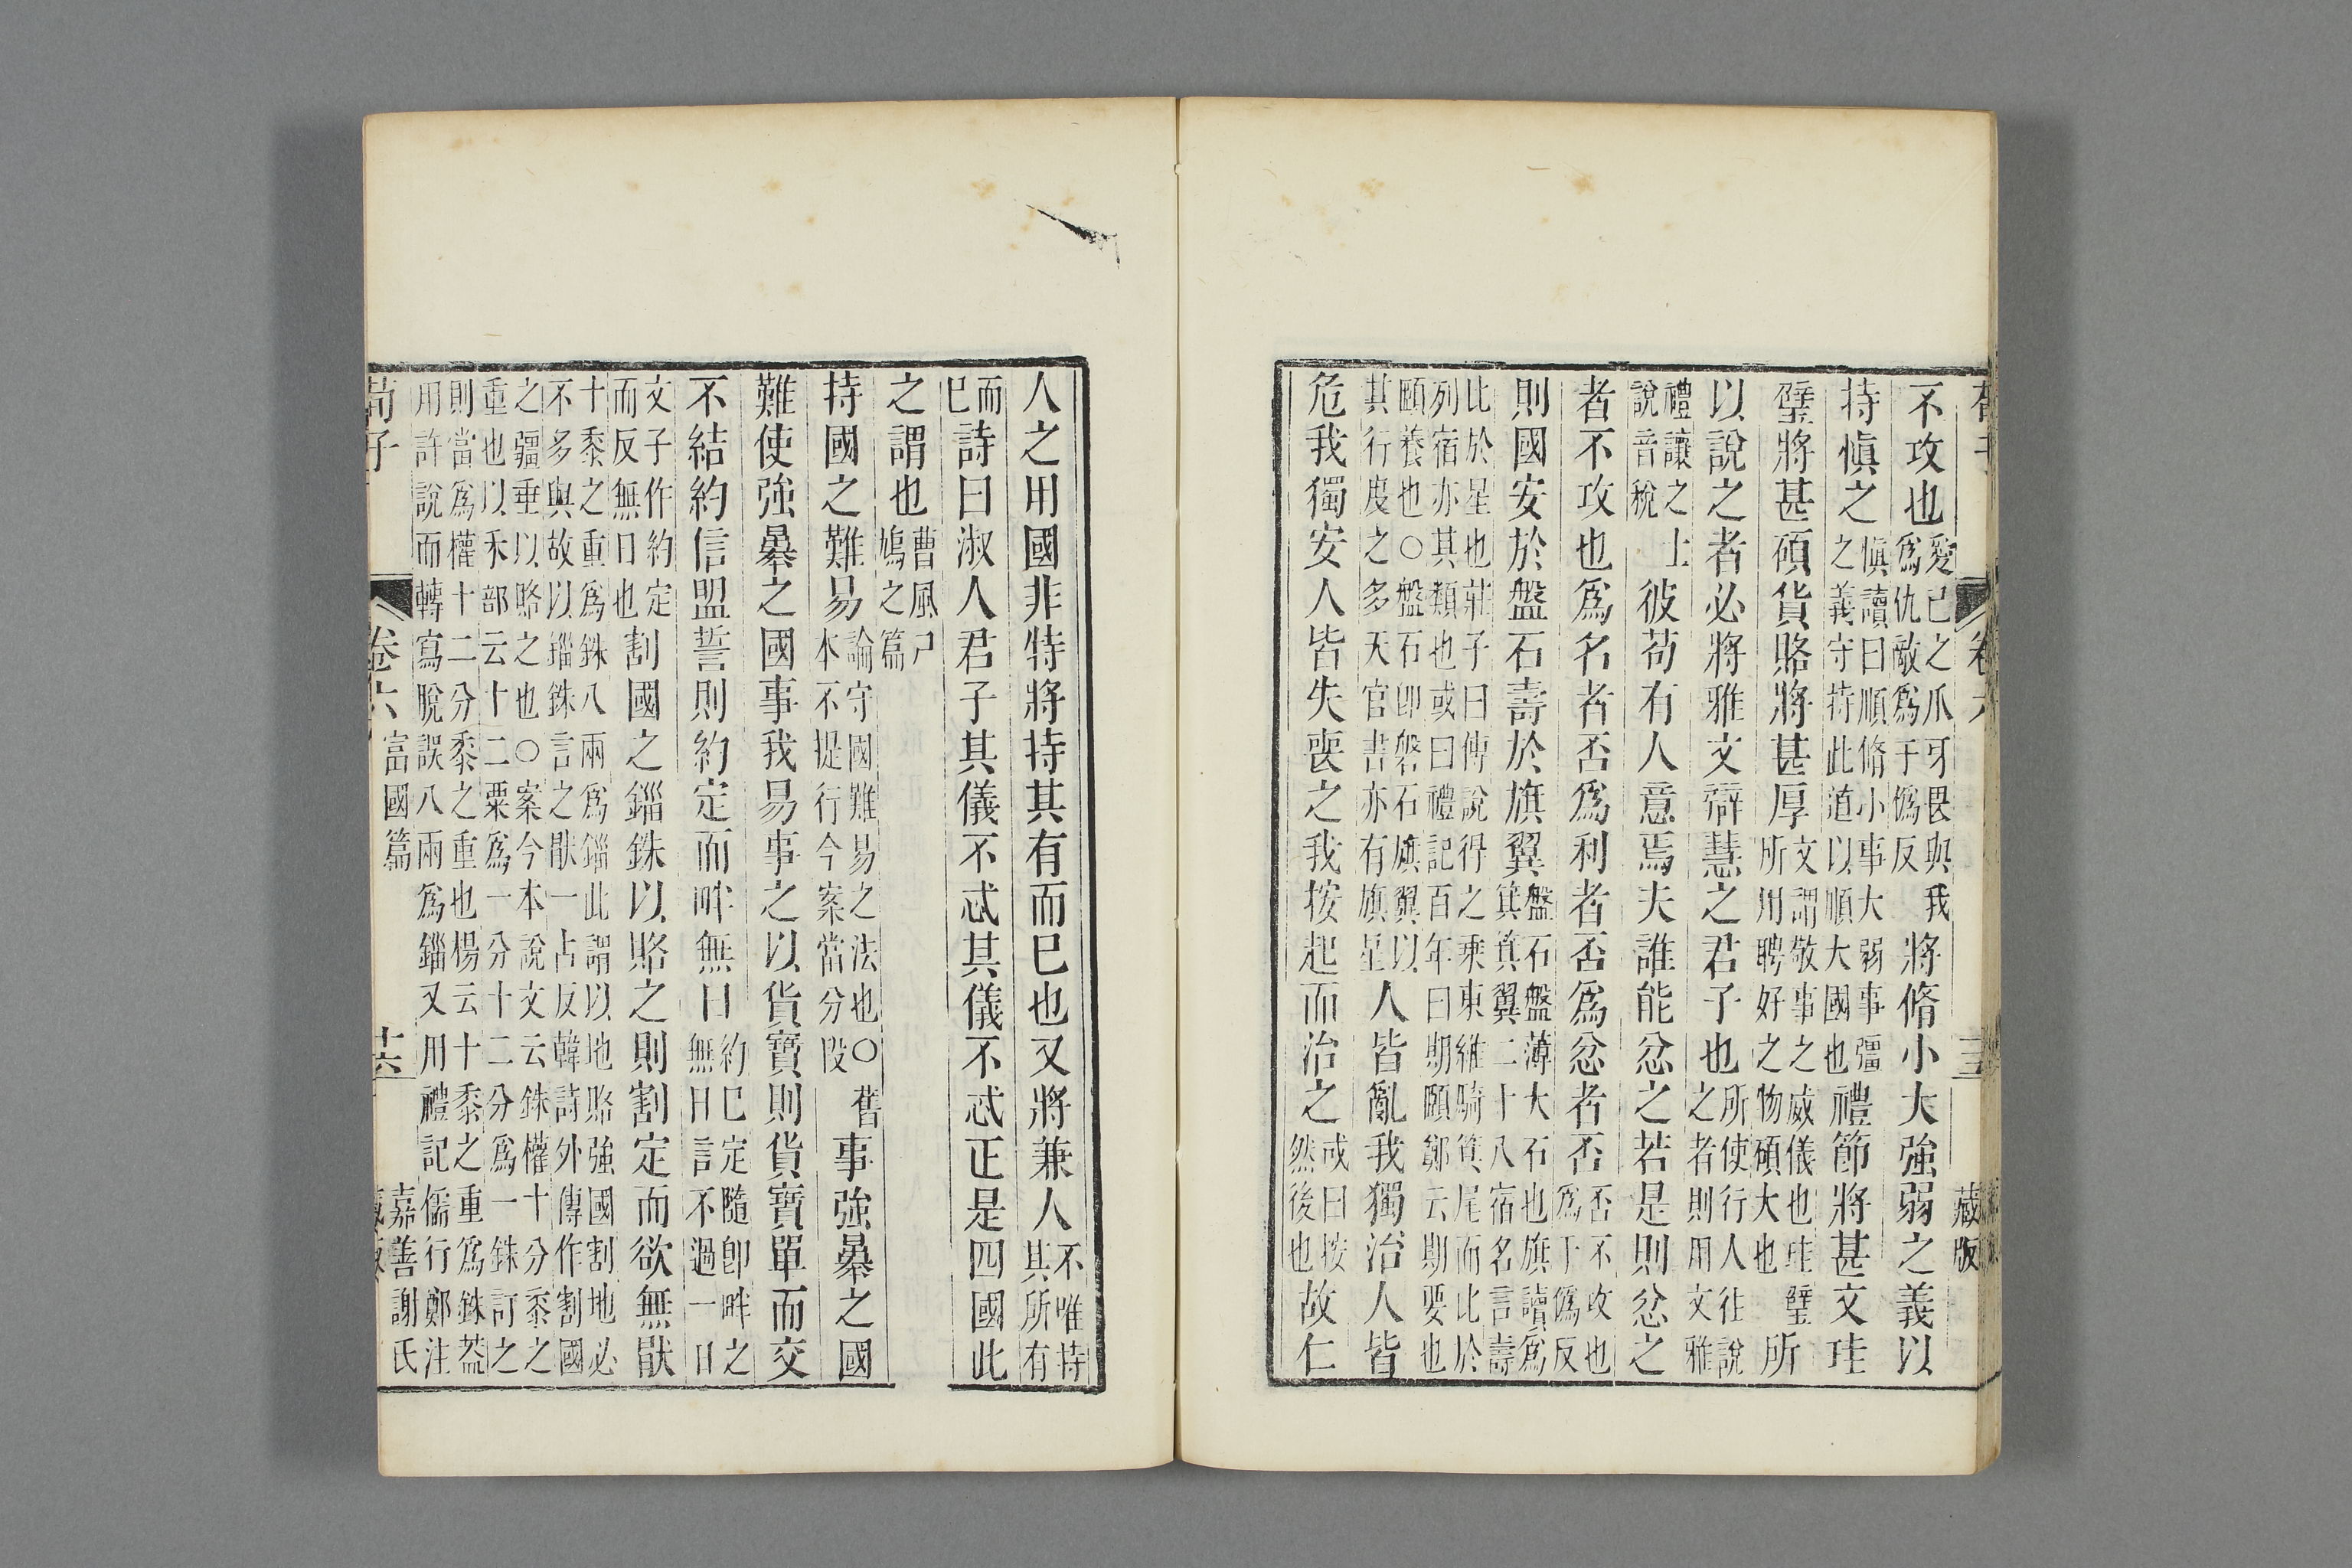 藏版
不攻也愛已之爪牙畏與我爲仇敵爲于僞反將脩小大強弱之義以
持愼之愼讀曰順脩小事大弱事彊之義守持此道以順大國也禮節將甚文珪
璧將甚碩貨賂將甚厚文謂敬事之威儀也珪璧所用聘好之物碩大也所
以說之者必將雅文辯慧之君子也所使行人往說之者則用文雅
禮讓之士說音稅彼苟有人意焉夫誰能忿之若是則忿之
者不攻也爲名者否爲利者否爲忿者否否不攻也爲于僞反
則國安於盤石壽於旗翼盤石盤薄大石也旗讀爲箕箕翼二十八宿名言壽
比於星也莊子曰傅說得之乘東維騎箕尾而比於列宿亦其類也或曰禮記百年曰期頤鄭云期要也
頤養也○盤石卽磐石旗翼以其行度之多天官書亦有旗星人皆亂我獨治人皆
危我獨安人皆失喪之我按起而治之或曰按然後也故仁
人之用國非特將持其有而已也又將兼人不唯持其所有
而已詩曰淑人君子其儀不忒其儀不忒正是四國此
之謂也曹風尸鳩之篇
持國之難易論守國難易之法也○舊本不提行今案當分段事強暴之國
難使強暴之國事我易事之以貨寶則貨寶單而交
不結約信盟誓則約定而畔無日約已定隨卽畔之無日言不過一日
文子作約定而反無日也割國之錙銖以賂之則割定而欲無猒
十黍之重爲銖八兩爲錙此謂以地賂強國割地必不多與故以錙銖言之猒一占反韓詩外傳作割國
之彊垂以賂之也○案今本說文云銖權十分黍之重也以禾部云十二粟爲一分十二分爲一銖訂之
則當爲權十二分黍之重也楊云十黍之重爲銖葢用許說而轉寫脫誤八兩爲錙又用禮記儒行鄭注
荀子 卷六 富國篇 十六 嘉善謝氏